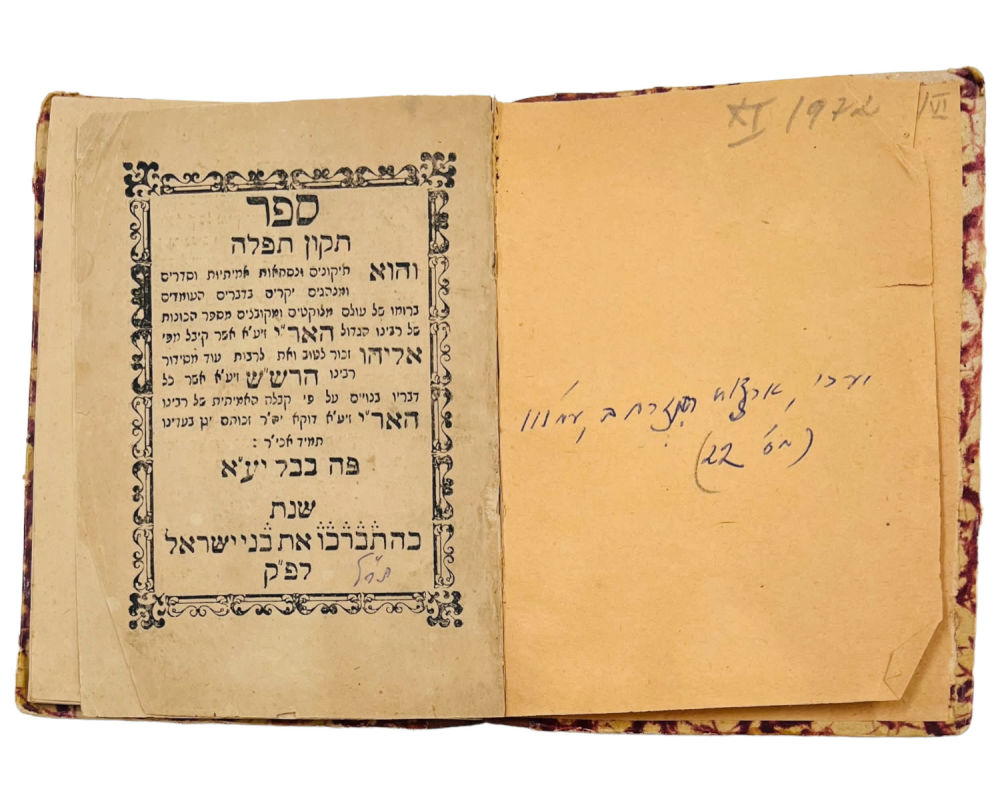 ספר
תקון תפלה
והוא תיקונים ונסחאות אמיתיות וסדרים
ומנהגים יקרים בדברים העומדים
ברומו של עולם מלוקטים ומקובנים מספר הכונות
של רבינו הגדול האר"י זיע"א אשר קיבל מפי
אליהו זכור לטוב ואת לרבות עוד מסידור
רבינו הרש"ש זיע"א אשר כל
דבריו בנויים על פי קבלה האמיתית של רבינו
האר"י זיע"א דוקא זכותם יגן בעדינו
תמיד אכי"ר :
פה בבל יע"א
שנת
כה תברכו את בני ישראל
לפ"ק
XI 1972
VI
יערי,
(מס' 22)